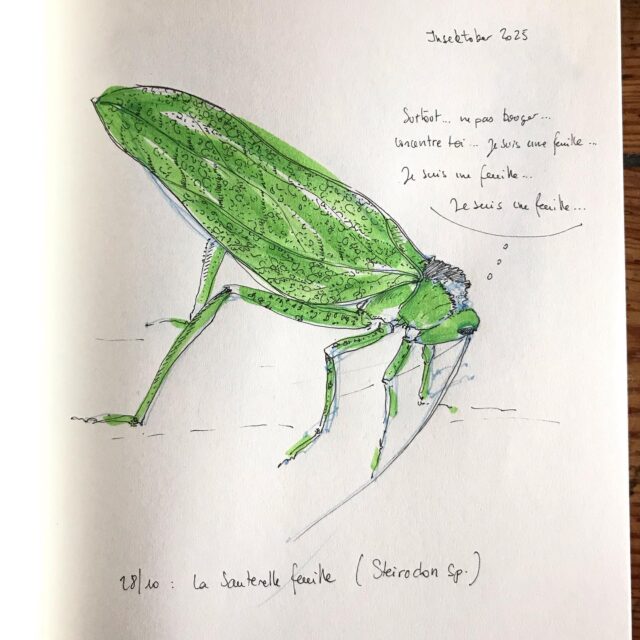 Insektober 2025
Surtout... ne pas bouger...
concentre toi... Je suis une feuille...
Je suis une feuille...
Je suis une feuille...
28/10 : La Sauterelle feuille (Steirodon sp.)